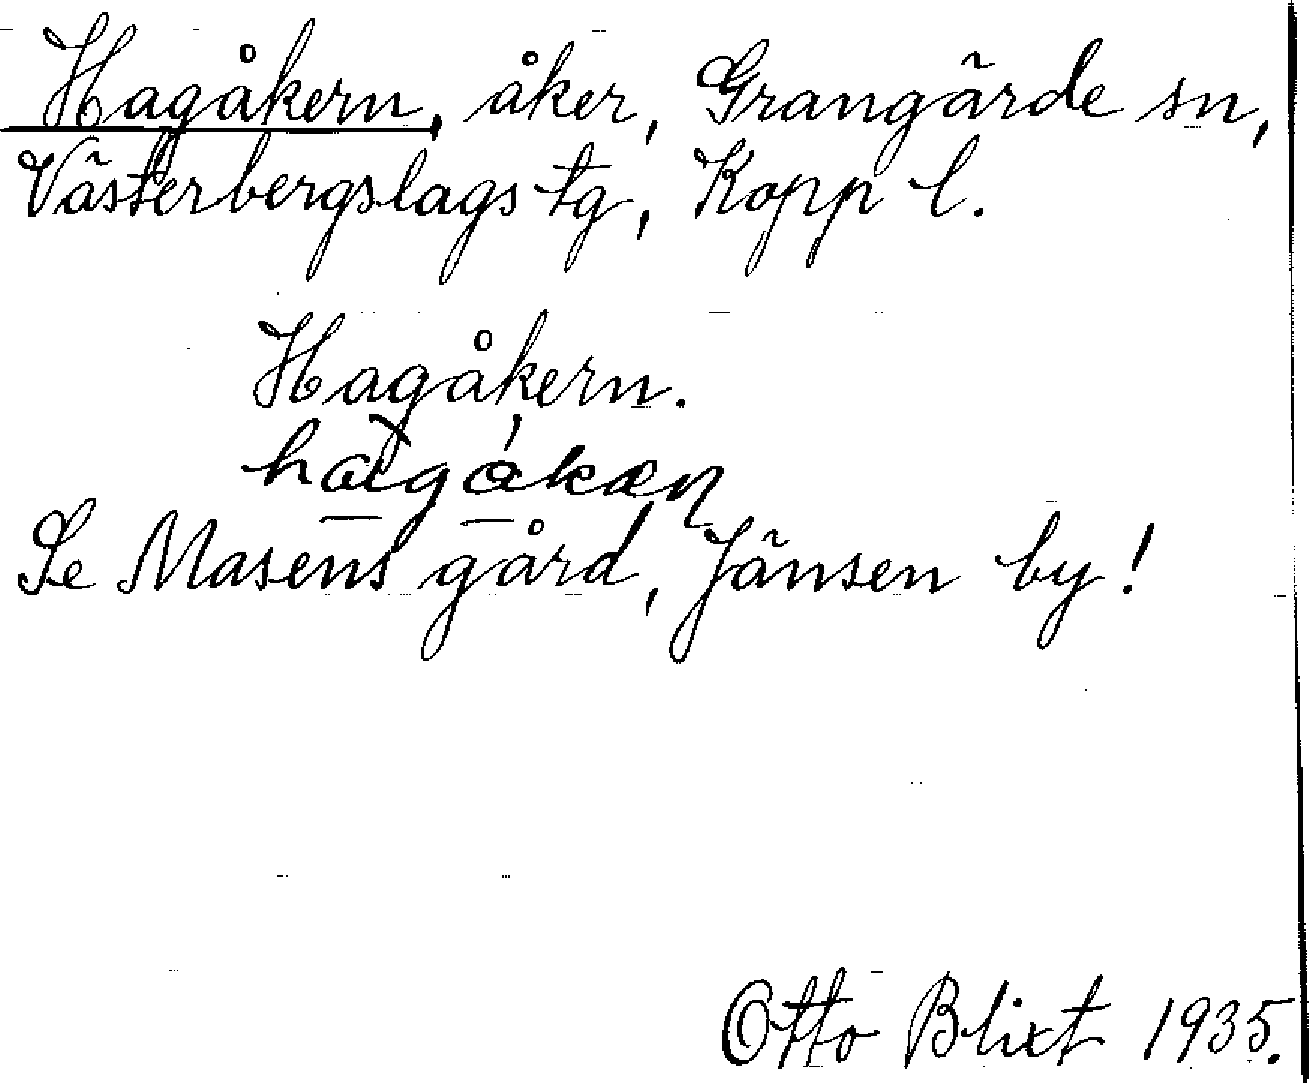 Hagåkern, åker, Grangärde sn,
Västerbergslags tg, Kopp l.
Hagåkern.
Se Masens gård, Jänsen by!
Otto Blixt 1935.